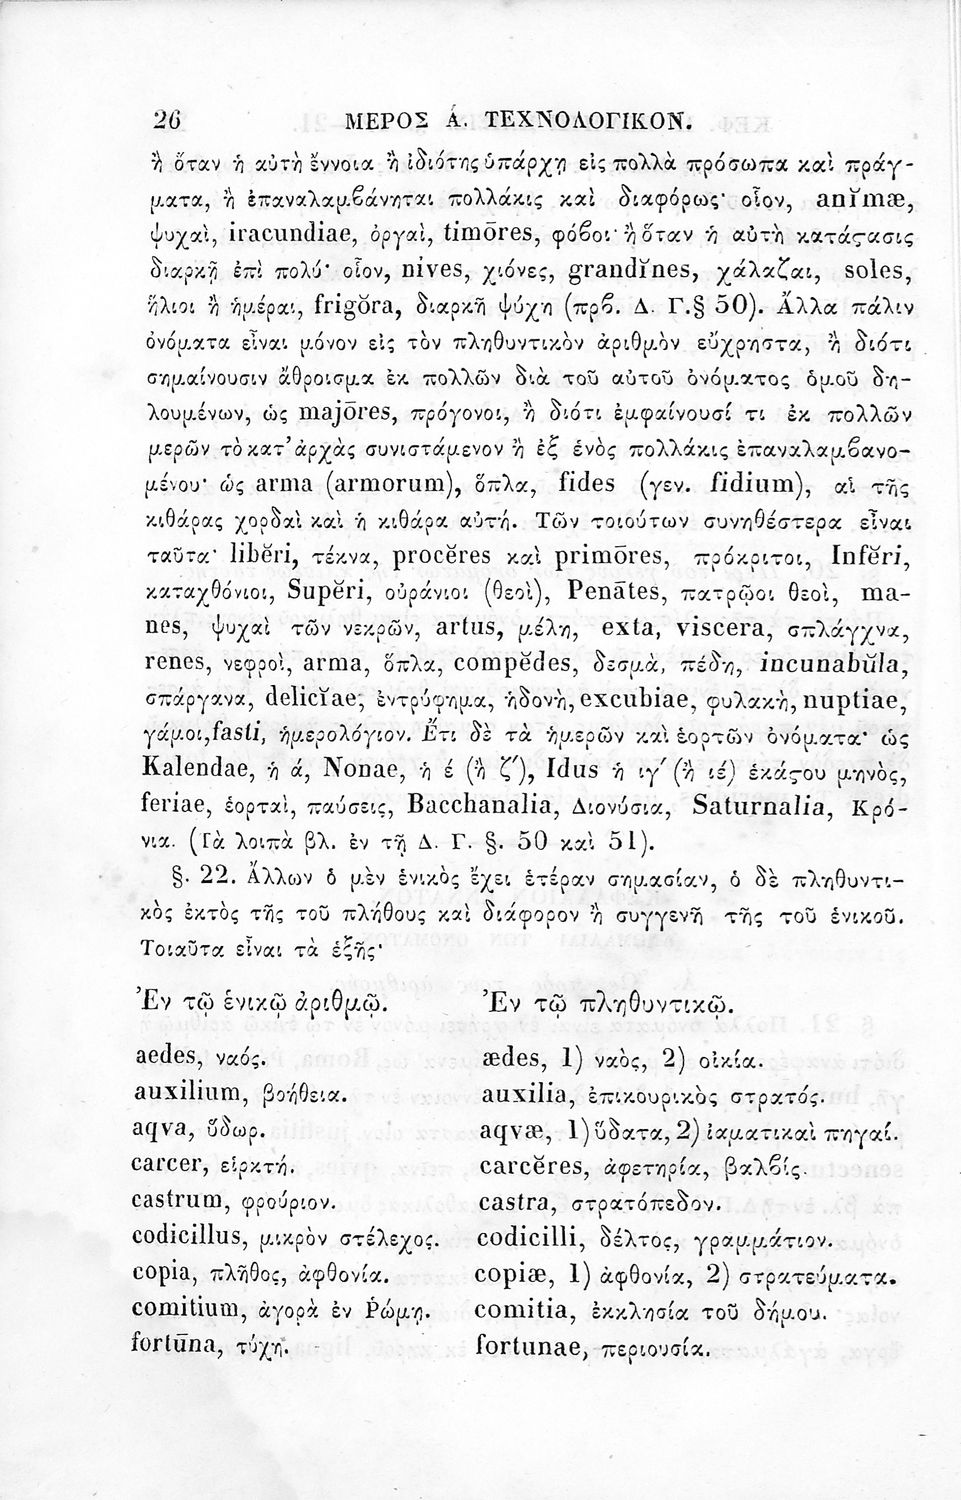 26 ΜΕΡΟΣ Ά. ΤΕΧΝΟΛΟΓΙΚΟΝ.
ἢ ὅταν ἡ αὐτὴ ἔννοια ἢ ἰδιότης ὑπάρχῃ εἰς πολλὰ πρόσωπα καὶ πράγ-
ματα, ἢ ἐπαναλαμϐάνηται πολλάκις καὶ διαφόρως· οἷον, anĭmæ,
ψυχαὶ, iracundiae, ὀργαὶ, timōres, φόϐοι· ἢ ὅταν ἡ αὐτὴ κατάϛασις
διαρκῇ ἐπὶ πολύ· οἷον, nĭves, χιόνες, grandĭnes, χάλαζαι, soles,
ἥλιοι ἢ ἡμέραι, frigŏra, διαρκῆ ψύχη (πρϐ. Δ. Γ.§ 50). Ἄλλα πάλιν
ὀνόματα εἶναι μόνον εἰς τὸν πληθυντικὸν ἀριθμὸν εὔχρηστα, ἢ διότι
σημαίνουσιν ἄθροισμα ἐκ πολλῶν διὰ τοῦ αὐτοῦ ὀνόματος ὁμοῦ δη-
λουμένων, ὡς majōres, πρόγονοι, ἢ διότι ἐμφαίνουσί τι ἐκ πολλῶν
μερῶν τὸ κατ’ ἀρχὰς συνιστάμενον ἢ ἐξ ἑνὸς πολλάκις ἐπαναλαμϐανο-
μένου· ὡς arma (armorum), ὅπλα, fides (γεν. fidium), αἱ τῆς
κιθάρας χορδαὶ καὶ ἡ κιθάρα αὐτή. Τῶν τοιούτων συνηθέστερα εἶναι
ταῦτα· libĕri, τέκνα, procĕres καὶ primōres, πρόκριτοι, Infĕri,
καταχθόνιοι, Supĕri, οὐράνιοι (θεοὶ), Penātes, πατρῷοι θεοὶ, ma-
nes, ψυχαὶ τῶν νεκρῶν, artus, μέλη, exta, viscera, σπλάγχνα,
renes, νεφροὶ, arma, ὅπλα, compĕdes, δεσμὰ, πέδη, incunabŭla,
σπάργανα, delicĭae, ἐντρύφημα, ἡδονὴ, excubiae, φυλακὴ, nuptiae,
γάμοι, fasti, ἡμερολόγιον. Ἔτι δὲ τὰ ἡμερῶν καὶ ἑορτῶν ὀνόματα· ὡς
Kalendae, ἡ ά, Nonae, ἡ έ (ἢ ζ΄), Idus ἡ ιγ΄ (ἢ ιέ) ἑκάϛου μηνὸς,
feriae, ἑορταὶ, παύσεις, Bacchanalia, Διονύσια, Saturnalia, Κρό-
νια. (Τὰ λοιπὰ βλ. ἐν τῇ Δ. Γ. §. 50 καὶ 51).
§. 22. Ἄλλων ὁ μὲν ἑνικὸς ἔχει ἑτέραν σημασίαν, ὁ δὲ πληθυντι-
κὸς ἐκτὸς τῆς τοῦ πλήθους καὶ διάφορον ἢ συγγενῆ τῆς τοῦ ἑνικοῦ.
Τοιαῦτα εἶναι τὰ ἑξῆς·
Ἐν τῷ ἑνικῷ ἀριθμῷ. Ἐν τῷ πληθυντικῷ.
aedes, ναός. ædes, 1) ναὸς, 2) οἰκία.
auxilium, βοήθεια. auxilia, ἐπικουρικὸς στρατός.
aqva, ὕδωρ. aqvæ, 1) ὕδατα, 2) ἰαματικαὶ πηγαί.
carcer, εἱρκτή. carcĕres, ἀφετηρία, βαλϐίς.
castrum, φρούριον. castra, στρατόπεδον.
codicillus, μικρὸν στέλεχος. codicilli, δέλτος, γραμμάτιον.
copia, πλῆθος, ἀφθονία. copiæ, 1) ἀφθονία, 2) στρατεύματα.
comitium, ἀγορὰ ἐν Ῥώμῃ. comitia, ἐκκλησία τοῦ δήμου.
fortūna, τύχη. fortunae, περιουσία.